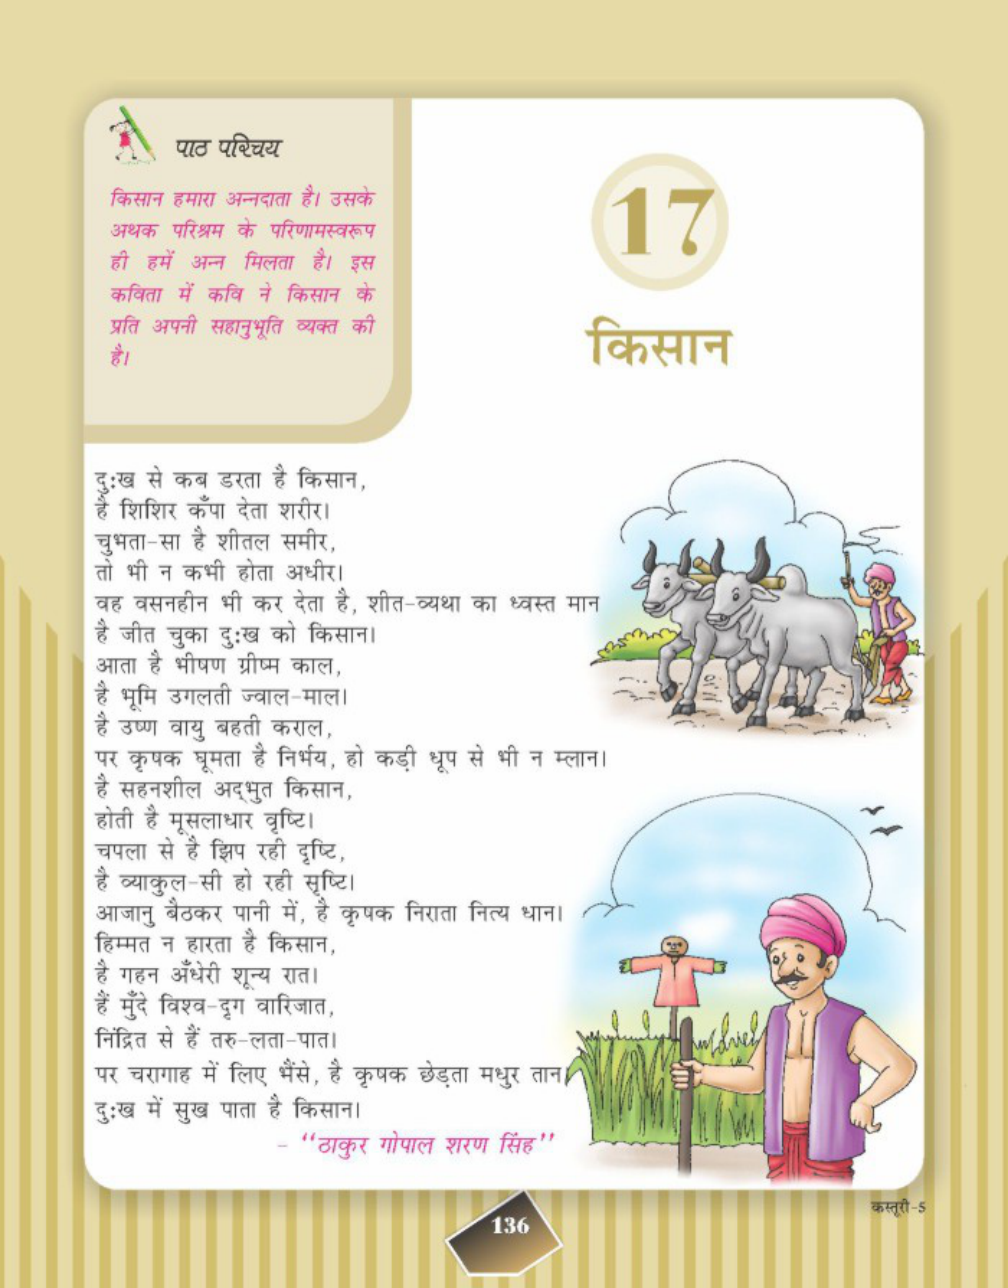 पाठ परिचय
किसान हमारा अन्नदाता है। उसके
अथक परिश्रम के परिणामस्वरूप
ही हमें अन्न मिलता है। इस
कविता में कवि ने किसान के
प्रति अपनी सहानुभूति व्यक्त की
है।
17
किसान
दुःख से कब डरता है किसान,
है शिशिर कँपा देता शरीर।
चुभता-सा है शीतल समीर,
तो भी न कभी होता अधीर।
वह वसनहीन भी कर देता है, शीत-व्यथा का ध्वस्त मान
है जीत चुका दुःख को किसान।
आता है भीषण ग्रीष्म काल,
है भूमि उगलती ज्वाल-माल।
है उष्ण वायु बहती कराल,
पर कृषक घूमता है निर्भय, हो कड़ी धूप से भी न म्लान।
है सहनशील अद्‌भुत किसान,
होती है मूसलाधार वृष्टि।
चपला से है झिप रही दृष्टि,
है व्याकुल-सी हो रही सृष्टि।
आजानु बैठकर पानी में, है कृषक निराता नित्य धान।
हिम्मत न हारता है किसान,
है गहन अँधेरी शून्य रात।
हैं मुँदे विश्व-दृग वारिजात,
निंद्रित से हैं तरु-लता-पात।
पर चरागाह में लिए भैंसे, है कृषक छेड़ता मधुर तान,
दुःख में सुख पाता है किसान।
- ‘‘ठाकुर गोपाल शरण सिंह’’
कस्तूरी-5
136